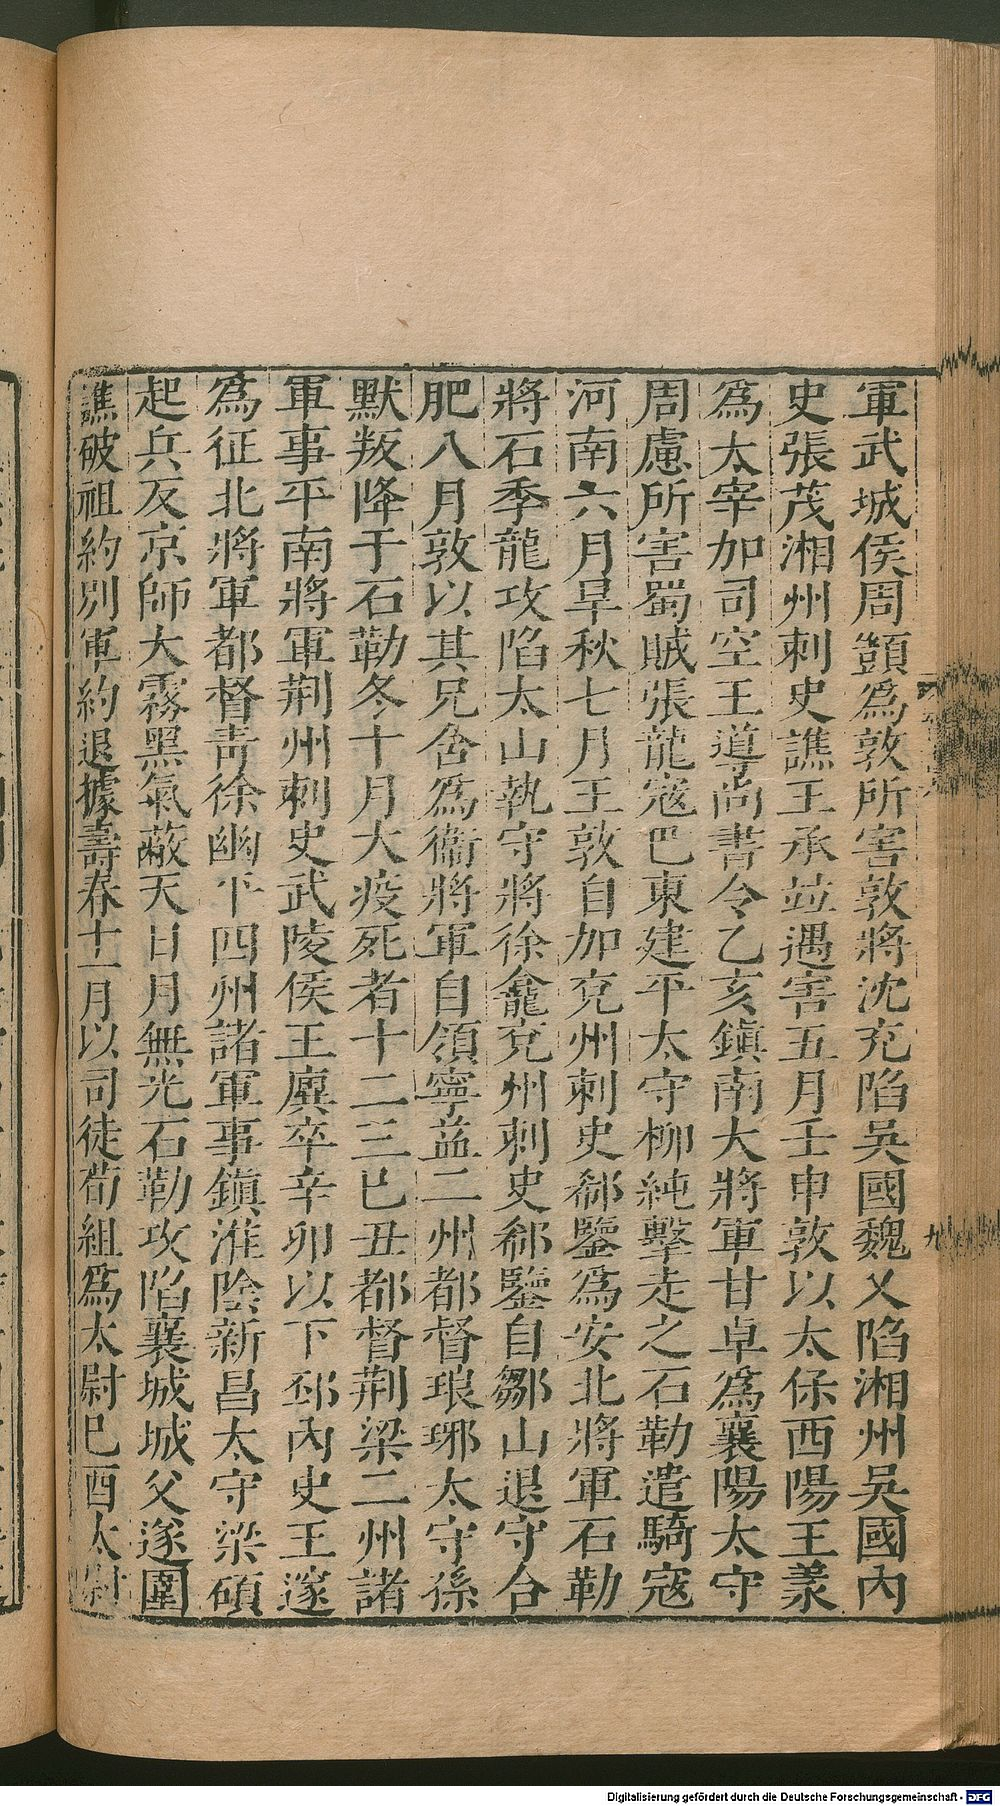 軍武城侯周顗爲敦所害敦將沈充陷吳國魏乂陷湘州吳國內
史張茂湘州刺史譙王承竝遇害五月壬申敦以太保西陽王羕
爲太宰加司空王導尚書令乙亥鎭南大將軍甘卓爲襄陽太守
周慮所害蜀賊張龍寇巴東建平太守柳純擊走之石勒遣騎寇
河南六月旱秋七月王敦自加兗州刺史郗鑒爲安北將軍石勒
將石季龍攻陷太山執守將徐龕兗州刺史郗鑒自鄒山退守合
肥八月敦以其兄含爲衞將軍自領寧益二州都督琅琊太守孫
默叛降于石勒冬十月大疫死者十二三巳丑都督荆梁二州諸
軍事平南將軍荆州刺史武陵侯王廙卒辛卯以下邳內史王邃
爲征北將軍都督靑徐幽平四州諸軍事鎭淮陰新昌太守梁碩
起兵反京師大霧黑氣蔽天日月無光石勒攻陷襄城城父遂圍
譙破祖約別軍約退據壽春十一月以司徒荀組爲太尉巳酉太尉
九
Digitalisierung gefördert durch die Deutsche Forschungsgemeinschaft - DFG